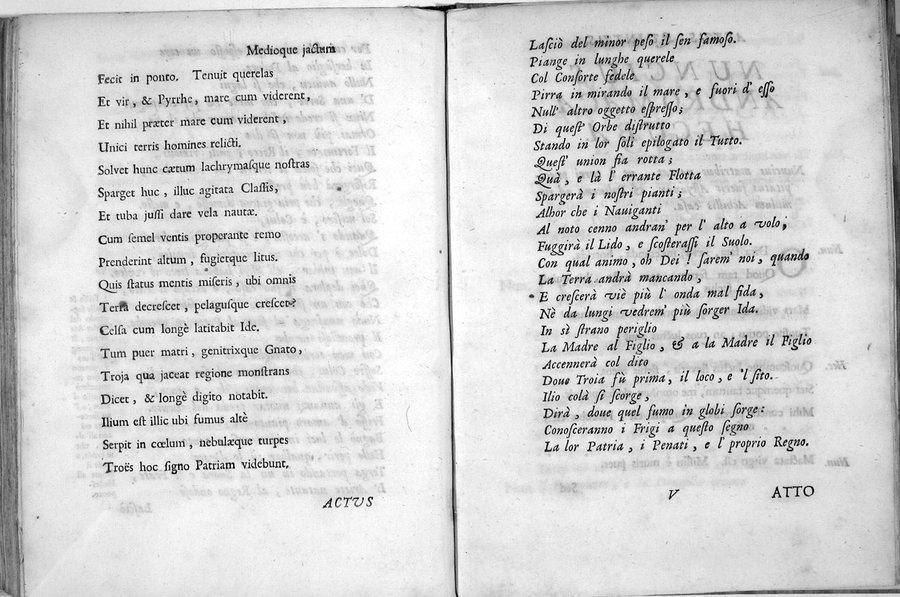 Medioque jactum
Fecit in ponto. Tenuit querelas
Et vir, & Pyrrhe, mare cum viderent,
Et nihil præter mare cum viderent,
Unici terris homines relicti.
Solvet hunc cætum lachrymasque nostras
Sparget huc, illuc agitata Classis,
Et tuba jussi dare vela nautæ.
Cum semel ventis properante remo
Prenderint altum, fugietque litus.
Quis status mentis miseris, ubi omnis
Terra decrescet, pelagusque crescet?
Celsa cum longè latitabit Ide.
Tum puer matri, genitrixque Gnato,
Troja qua jaceat regione monstrans
Dicet, & longè digito notabit.
Ilium est illic ubi fumus altè
Serpit in cœlum, nebulæque turpes
Troës hoc signo Patriam videbunt.
ACTVS
Lasciò del minor peso il sen famoso.
Piange in lunghe querele
Col Consorte fedele
Pirra in mirando il mare, e fuori d' esso
Null' altro oggetto espresso;
Di quest' Orbe distrutto
Stando in lor soli epilogato il Tutto.
Quest' union fia rotta;
Quà, e là l' errante Flotta
Spargerà i nostri pianti;
Alhor che i Nauiganti
Al noto cenno andran' per l' alto a volo,
Fuggirà il Lido, e scosterassi il Suolo.
Con qual animo, oh Dei! sarem' noi, quando
La Terra andrà mancando,
E crescerà viè più l' onda mal fida,
Nè da lungi vedrem' più sorger Ida.
In sè strano periglio
La Madre al Figlio, & a la Madre il Figlio
Accennerà col dito
Doue Troia fù prima, il loco, e 'l sito.
Ilio colà si scorge,
Dirà, doue quel fumo in globi sorge:
Conosceranno i Frigi a questo segno
La lor Patria, i Penati, e l' proprio Regno.
V ATTO